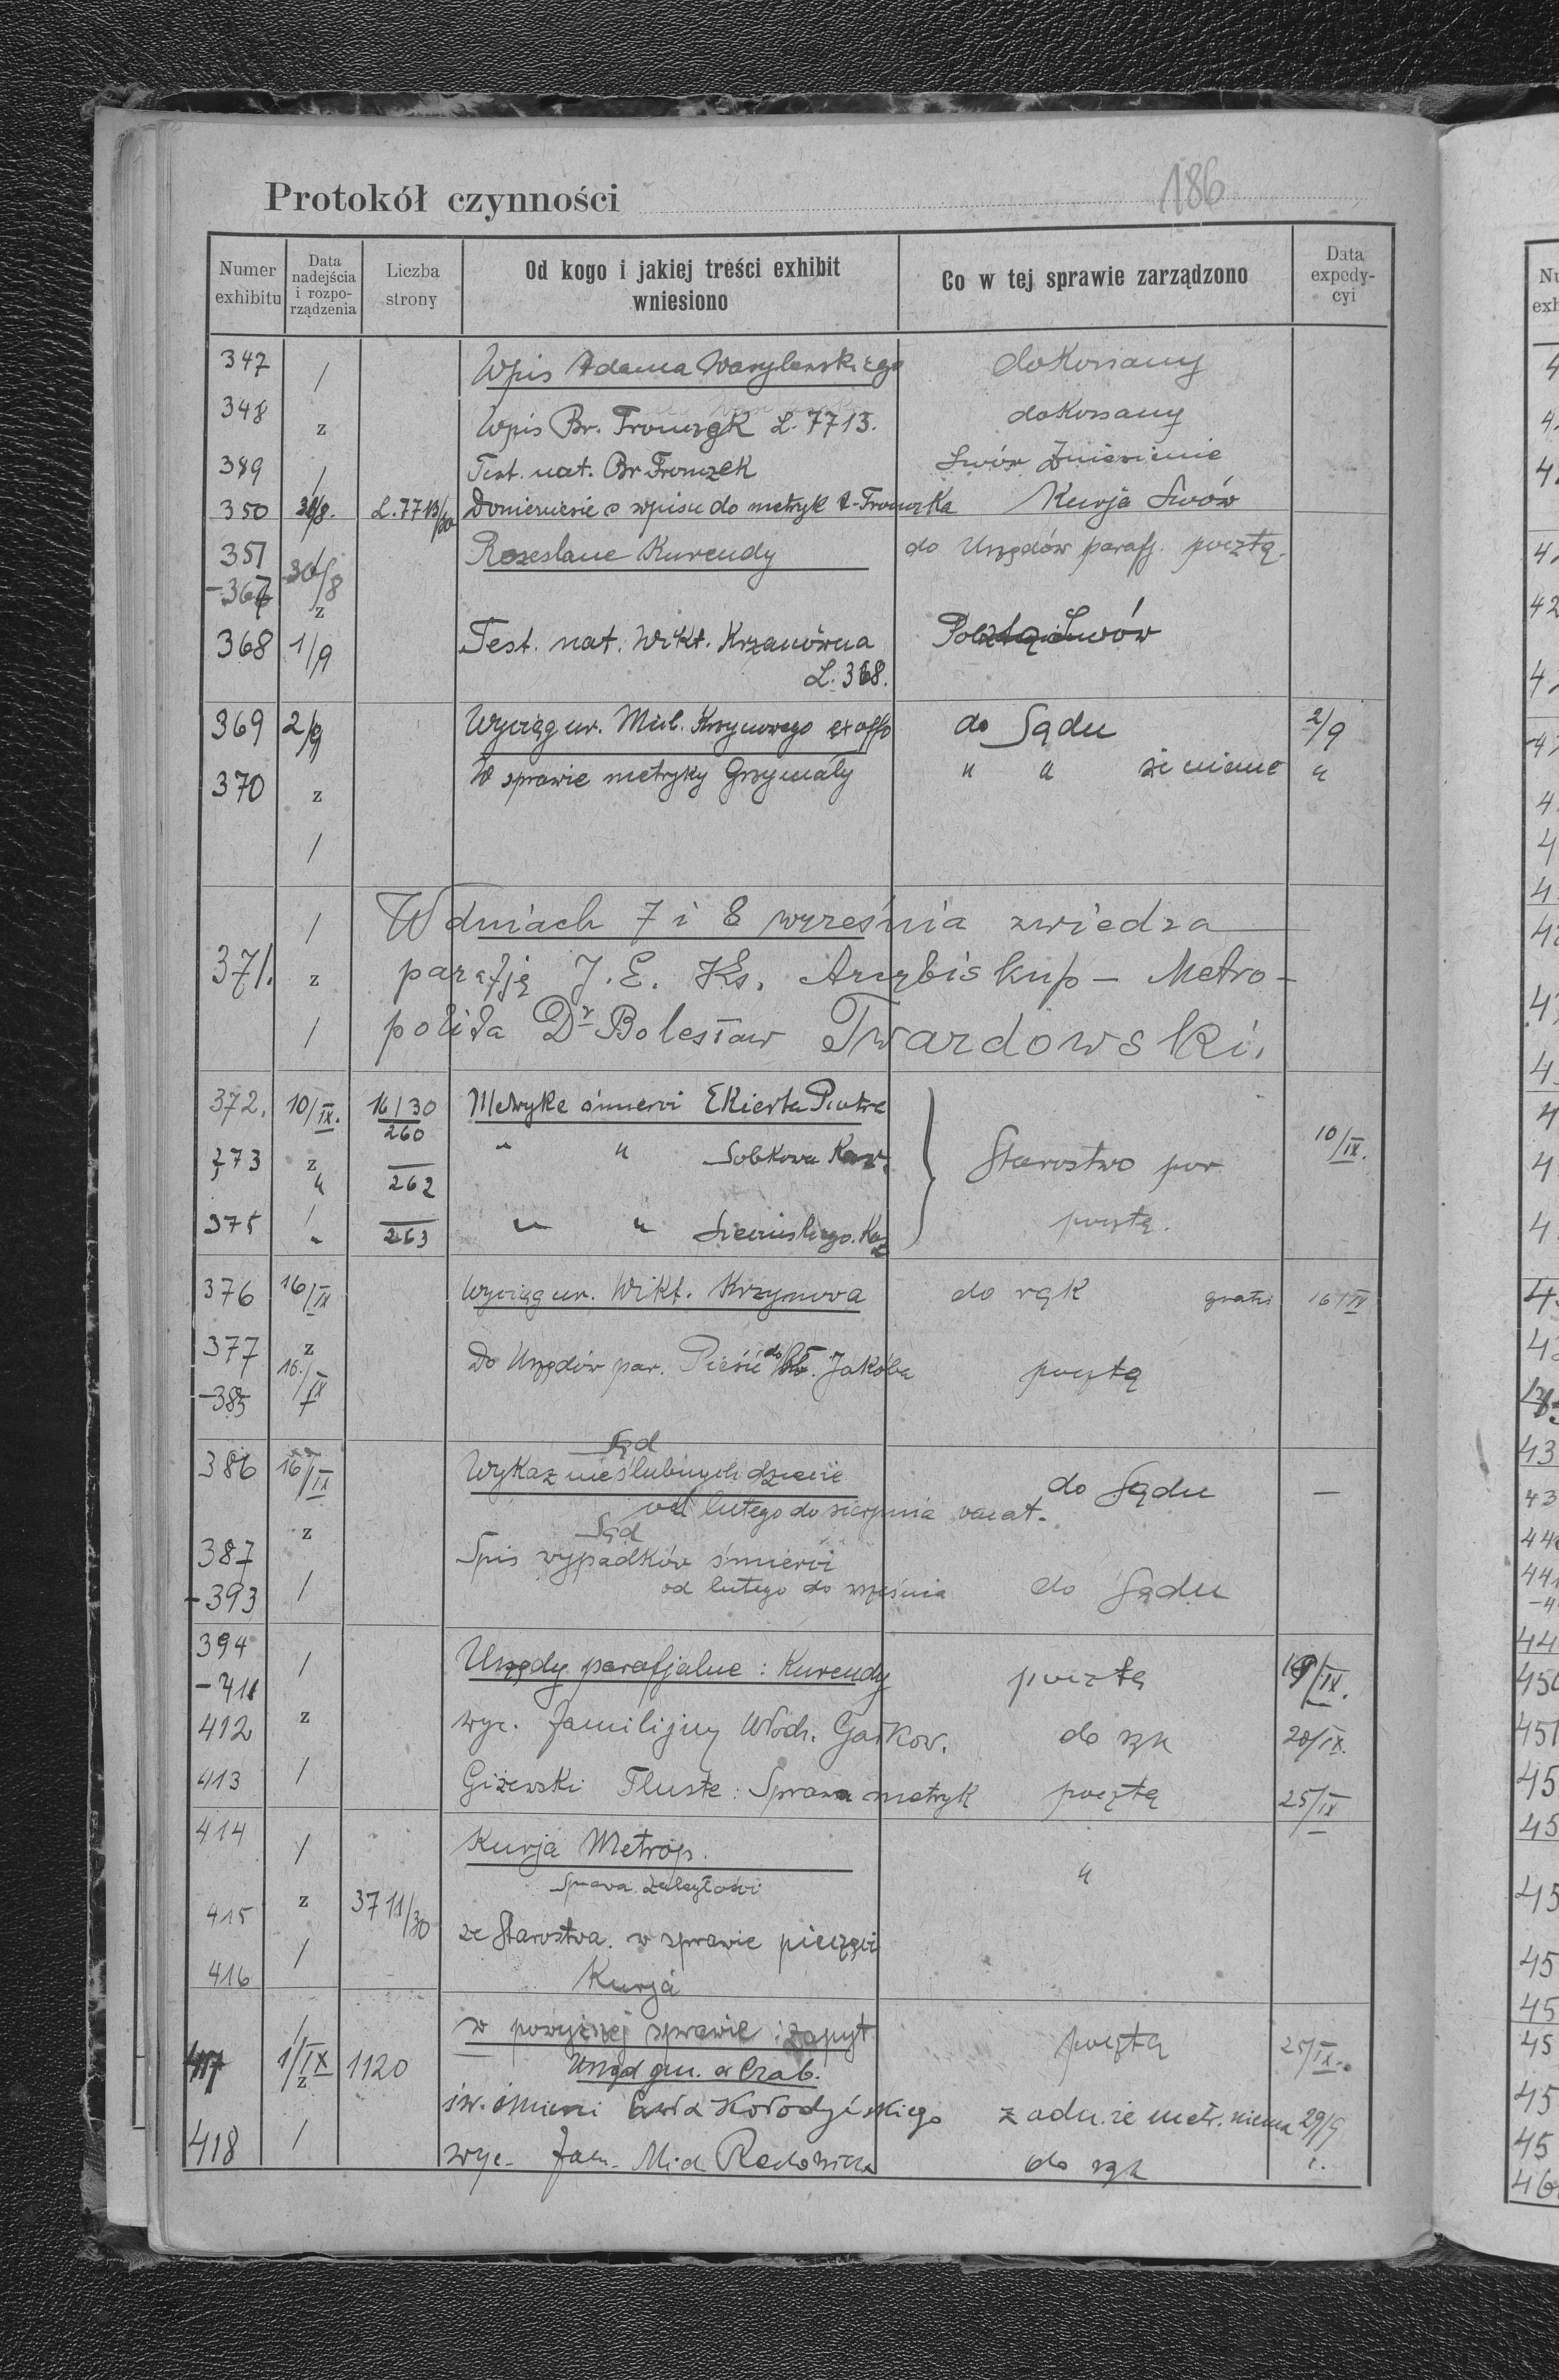 Protokół czynności 186
Numer exhibitu | Data nadejścia i rozporządzenia | Liczba strony | Od kogo i jakiej treści exhibit wniesiono | Co w tej sprawie zarządzono | Data expedycyi
347 / Wpis Adama Wasylewskiego dokonany
348 z Wpis Br. Fronczek L. 7713. dokonany
349 / Test. nat. Br Fronczek Lwów Zniesienie
350 30/8. L. 7713/30 Doniesienie o wpisie do metryk Fronczka Kurja Lwów
351 Rozesłane Kurendy do Urzędów parafj. pocztą.
-367 30/8
z
368 1/9 Test. nat. Wikt. Krzanówna Lwów
L. 368.
369 2/9 Wyciąg ur. Mich. Krzynowego ex offo do Sądu 2/9
370 z W sprawie metryky Grzymały " " że niema "
/
/ W dniach 7 i 8 września zwiedza
371. z parafję J. E. Ks. Arcybiskup - Metro-
/ polita Dr Bolesław Twardowski.
372. 10/IX. 16/30 Metryke śmierci Ekierta Piotra
260
373 z " " Sobkowa Starostwo por. 10/IX.
" 262
375 / " " pocztą.
" 263
376 16/IX Wyciąg ur. Wikt. Krzynowa do rąk gratis 16/IX
377 z Do Urzędów par. Pieśń do św. Jakóba pocztą
-385 16./IX
Sąd
386 16/IX Wykaz nieślubnych dziecie do Sądu —
od lutego do sierpnia vacat.
z Sąd
387 Spis wypadków śmierci
-393 / od lutego do września do Sądu
394 / Urzędy parafjalne : Kurendy pocztą 19/IX.
-411
412 z wyc. familijny Włodz. Gałkow. do rąk 20/IX.
413 / Giżewski Tłuste : Sprawa metryk pocztą 25/IX
414 / Kurja Metrop. "
Sprawa zaległości
415 z 3711/30 ze Starostwa w sprawie pieczęci
416 / Kurja
w powyższej sprawie : zapyt pocztą 25/IX.
417 1/IX 1120 Urząd gm.
z św. śmierci Kołodzińskiego z adn. że metr. niema 29/9
418 / wyc. fam. do rąk